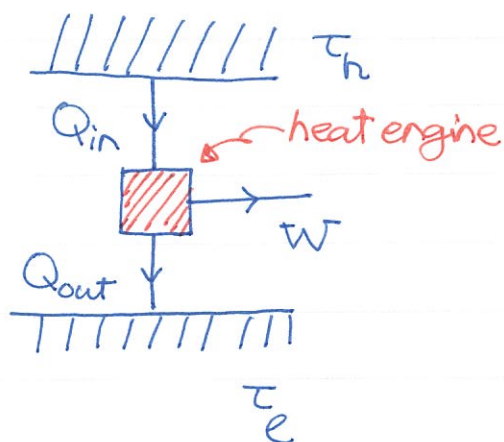 τₕ
Qin
heat engine
W
Qout
τₑ